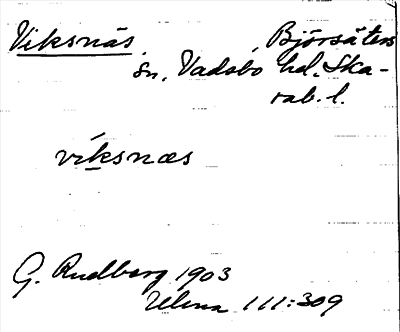 Viksnäs, Björsäters
sn, Vadsbo hd. Ska-
rab. l.
víksnæs
G. Rudberg 1903
111:309